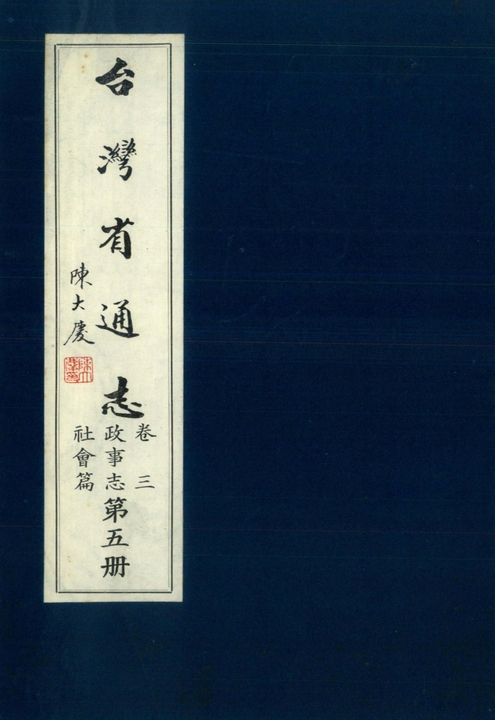 台灣省通志
卷三
政事志
社會篇
第五冊
陳大慶